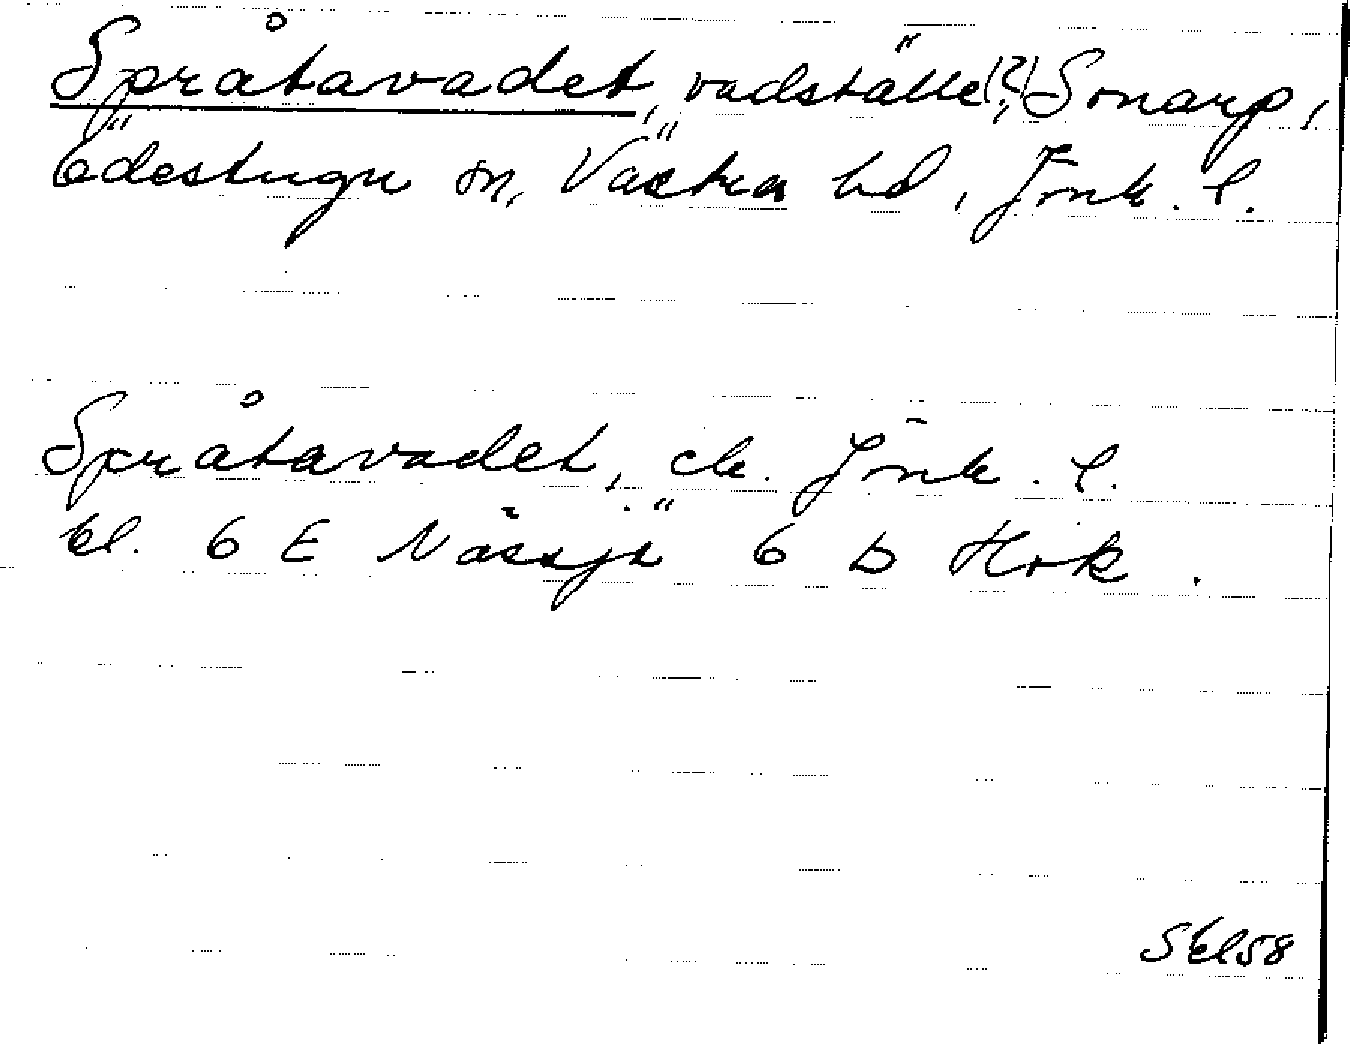 Språtavadet, vadställe(?), Sonarp,
Ödestugu sn, Västra hd, Jönk. l.
Språtavadet, ek. Jönk. l.
bl. 6 E Nässjö 6 D Hok.